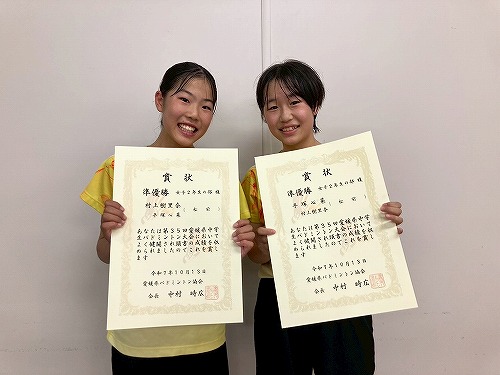 賞状
準優勝 女子2年生の部 様
村上樹里奈
手塚心菜
あなたは第35回愛媛県中学
生バドミントン大会において
よく健闘され頭書の成績を収
められましたのでこれを賞し
ます
令和7年10月13日
愛媛県バドミントン協会
会長 中村 時広
賞状
準優勝 女子2年生の部 様
手塚心菜
村上樹里奈
あなたは第35回愛媛県中学
生バドミントン大会において
よく健闘され頭書の成績を収
められましたのでこれを賞し
ます
令和7年10月13日
愛媛県バドミントン協会
会長 中村 時広